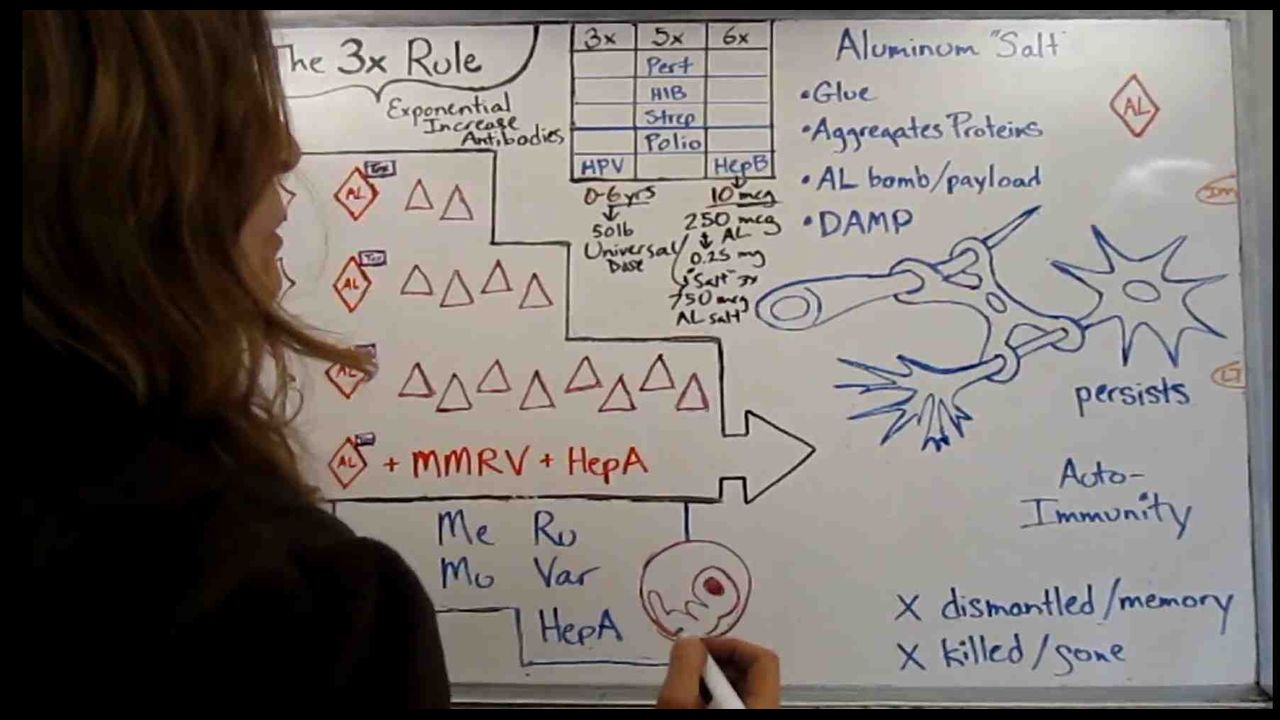 The 3x Rule
Exponential
Increase
Antibodies
3x 5x 6x
Pert
HIB
Strep
Polio
HPV HepB
0-6 yrs
50lb
Universal
Dose
10 mcg
250 mcg
AL
0.25 mg
"Salt" 3x
750 mcg
AL salt
Aluminum "Salt"
•Glue
•Aggregates Proteins
•AL bomb/payload
•DAMP
AL
persists
Auto-
Immunity
X dismantled/memory
X killed/gone
AL Tox
AL
AL
AL + MMRV + HepA
Me Ru
Mu Var
HepA